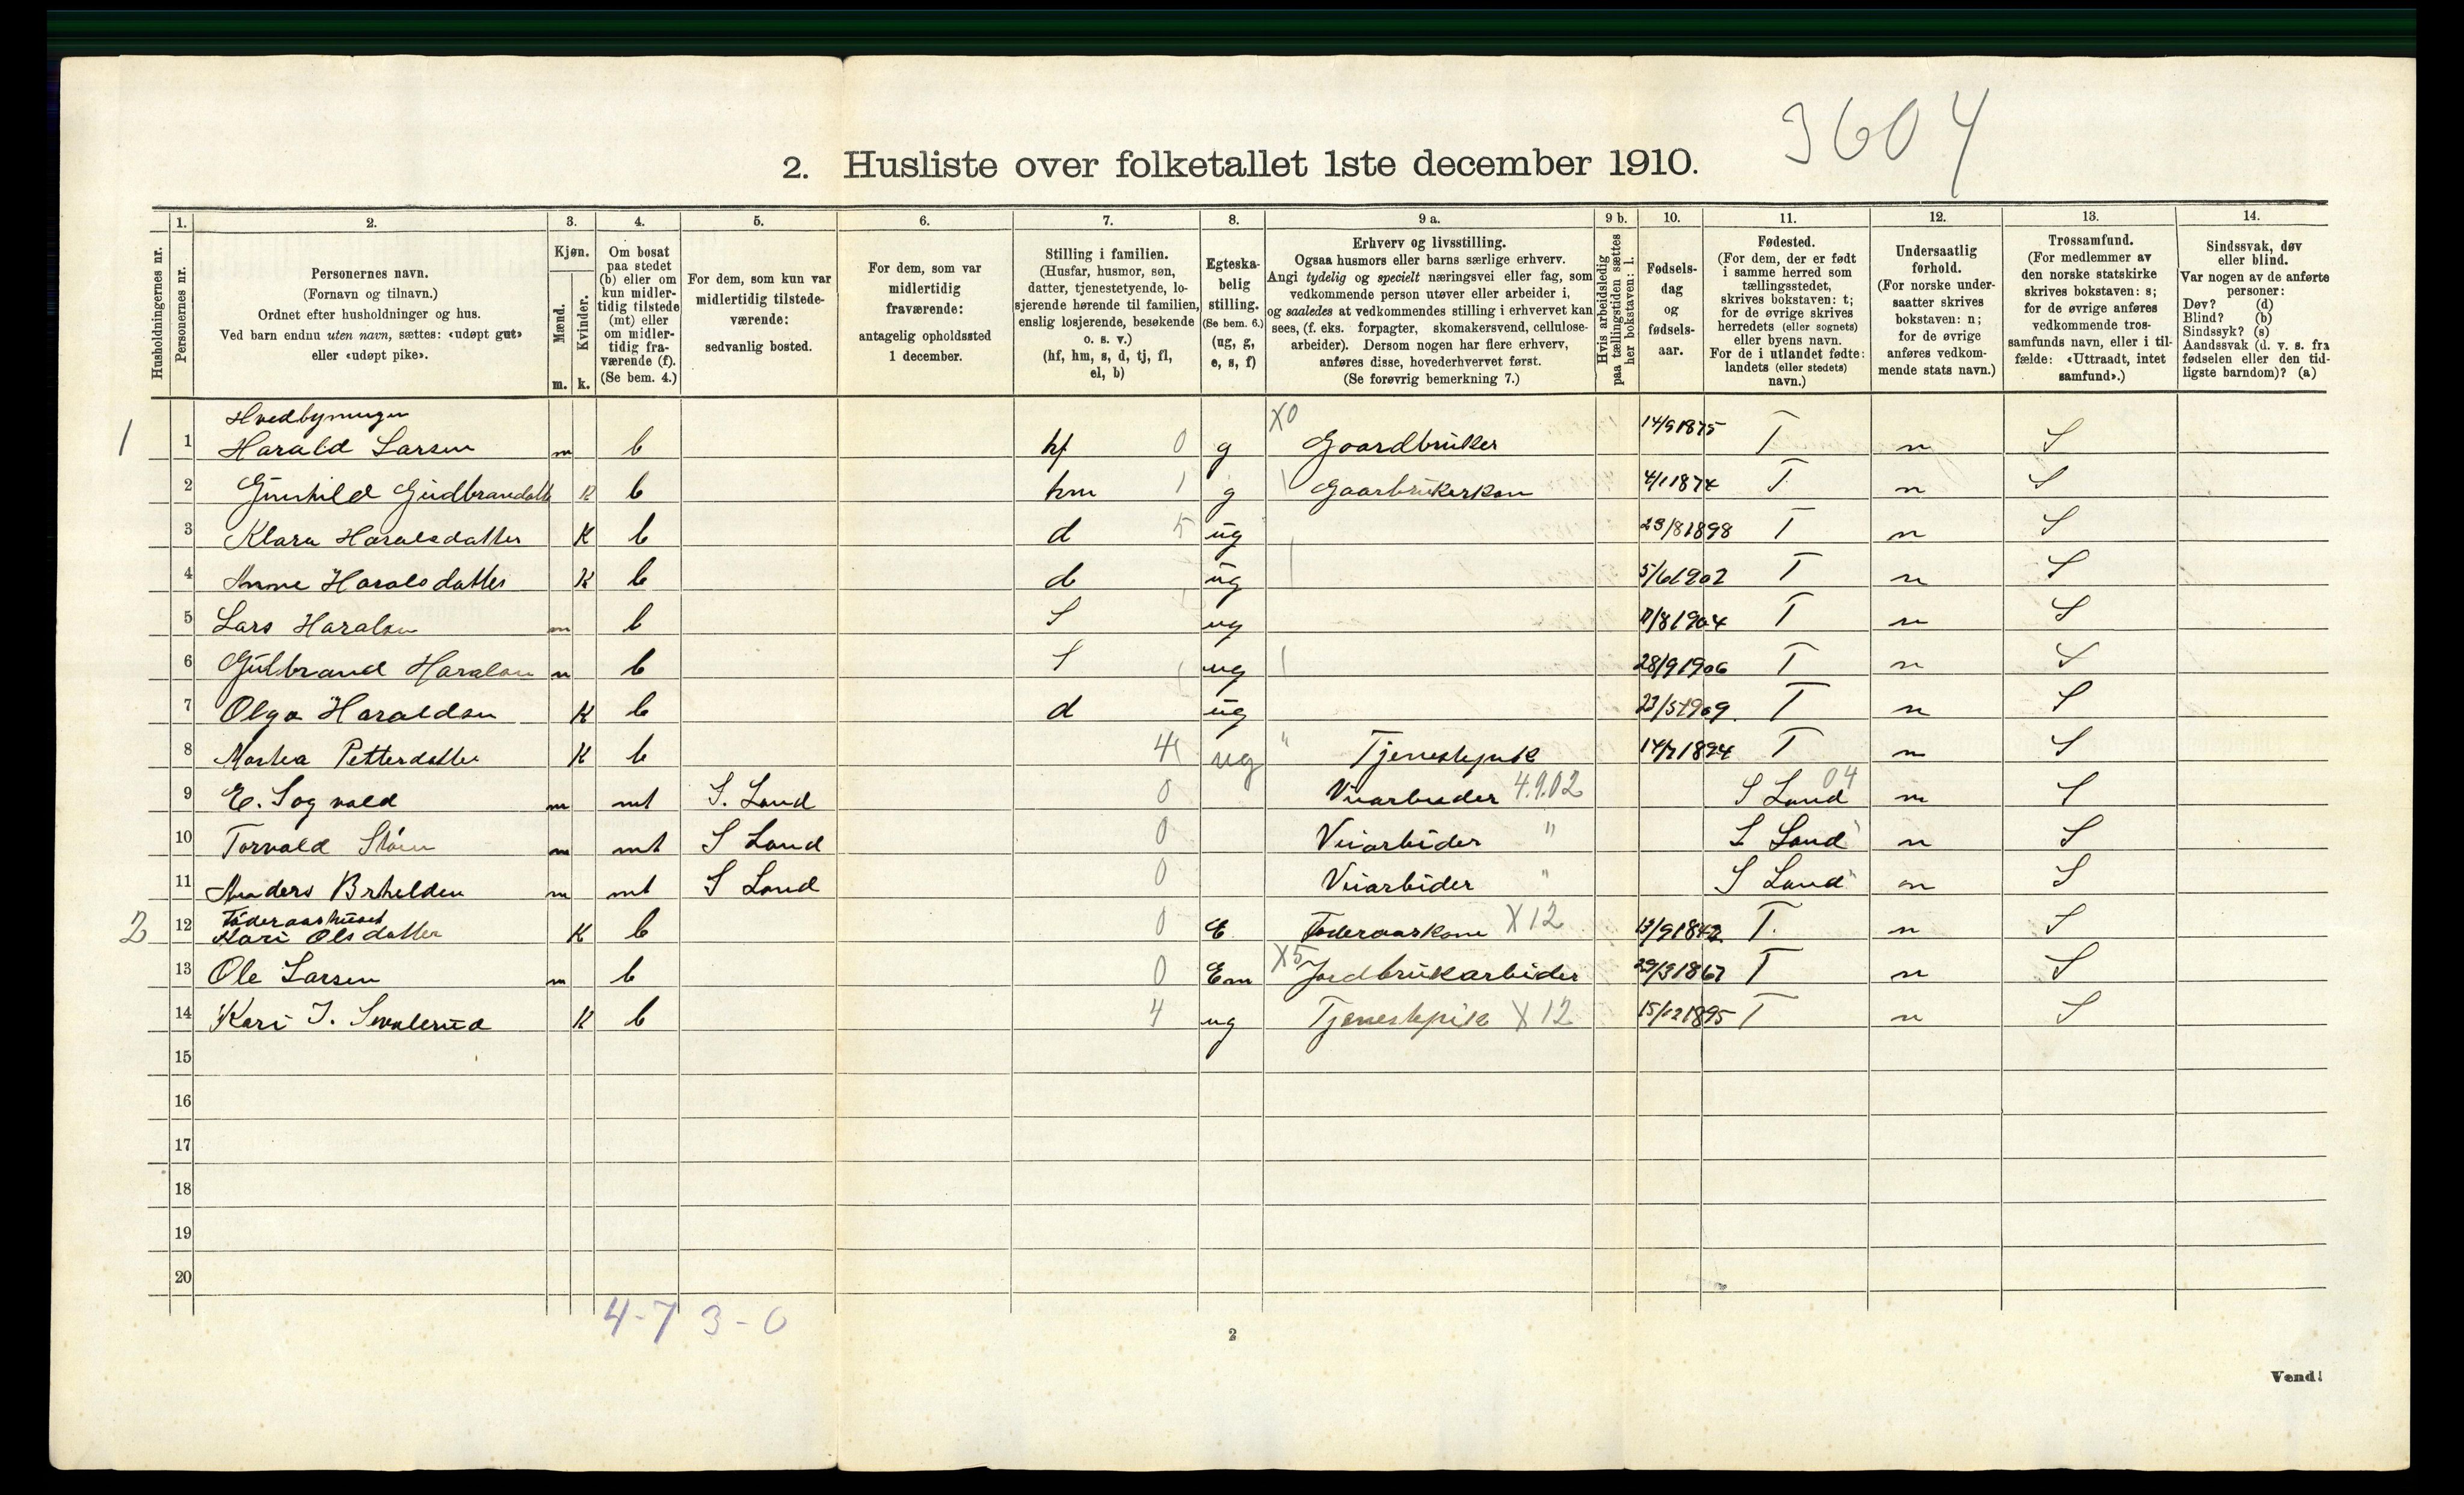 3604
2. Husliste over folketallet 1ste december 1910.
Husholdningernes nr.
1.
Personernes nr.
2.
Personernes navn.
(Fornavn og tilnavn.)
Ordnet efter husholdninger og hus.
Ved barn endnu uten navn, sættes: «udøpt gut»
eller «udøpt pike».
3.
Kjøn.
Mænd.
Kvinder.
m. k.
4.
Om bosat
paa stedet
(b) eller om
kun midler-
tidig tilstede
(mt) eller
om midler-
tidig fra-
værende (f).
(Se bem. 4.)
5.
For dem, som kun var
midlertidig tilstede-
værende:
sedvanlig bosted.
6.
For dem, som var
midlertidig
fraværende:
antagelig opholdssted
1 december.
7.
Stilling i familien.
(Husfar, husmor, søn,
datter, tjenestetyende, lo-
sjerende hørende til familien,
enslig losjerende, besøkende
o. s. v.)
(hf, hm, s, d, tj, fl,
el, b)
8.
Egteska-
belig
stilling.
(Se bem. 6.)
(ug, g,
e, s, f)
9 a.
Erhverv og livsstilling.
Ogsaa husmors eller barns særlige erhverv.
Angi tydelig og specielt næringsvei eller fag, som
vedkommende person utøver eller arbeider i,
og saaledes at vedkommendes stilling i erhvervet kan
sees, (f. eks. forpagter, skomakersvend, cellulose-
arbeider). Dersom nogen har flere erhverv,
anføres disse, hovederhvervet først.
(Se forøvrig bemerkning 7.)
9 b.
Hvis arbeidsledig
paa tællingstiden sættes
her bokstaven: l.
10.
Fødsels-
dag
og
fødsels-
aar.
11.
Fødested.
(For dem, der er født
i samme herred som
tællingsstedet,
skrives bokstaven: t;
for de øvrige skrives
herredets (eller sognets)
eller byens navn.
For de i utlandet fødte:
landets (eller stedets)
navn.)
12.
Undersaatlig
forhold.
(For norske under-
saatter skrives
bokstaven: n;
for de øvrige
anføres vedkom-
mende stats navn.)
13.
Trossamfund.
(For medlemmer av
den norske statskirke
skrives bokstaven: s;
for de øvrige anføres
vedkommende tros-
samfunds navn, eller i til-
fælde: «Uttraadt, intet
samfund».)
14.
Sindssvak, døv
eller blind.
Var nogen av de anførte
personer:
Døv? (d)
Blind? (b)
Sindssyk? (s)
Aandssvak (d. v. s. fra
fødselen eller den tid-
ligste barndom)? (a)
Hvedbyningen
1 1 Harald Larsen m b hf 0 g X0 Gaardbruker 14/9 1875 T n S
2 Gunhild Gudbrandsdatt K b hm 1 g Gaarbrukerkon 4/1 1874 T n S
3 Klara Haralsdatter K b d 5 ug 23/8 1898 T n S
4 Anne Haralsdatter K b d ug 5/6 1902 T n S
5 Lars Haralsen m b S ug 8 1904 T n S
6 Gulbrand Haralsen m b S ug 28/9 1906 T n S
7 Olga Haraldsen K b d ug 23/5 1909 T n S
8 Marthea Petterdatter K b 4 ug " Tjenestepik 1894 T n S
9 E. Sogvold m mt S. Land 0 Veiarbeider 4.9.02 S Land 04 n S
10 Torvald m mt S Land 0 Veiarbider " S Land n S
11 Anders m mt S Land 0 Veiarbider " S Land n S
Föderaashuset
2 12 Kari Olsdatter K b 0 E Foderaaskone X12 13/9 1842 T. n S
13 Ole Larsen m b 0 Em X5 Jordbrukarbider 29/3 1867 T n S
14 Kari J. K b 4 ug Tjenestepike X12 15/12 1895 T n S
15
16
17
18
19
20
4-7 3-0
2
Vend!